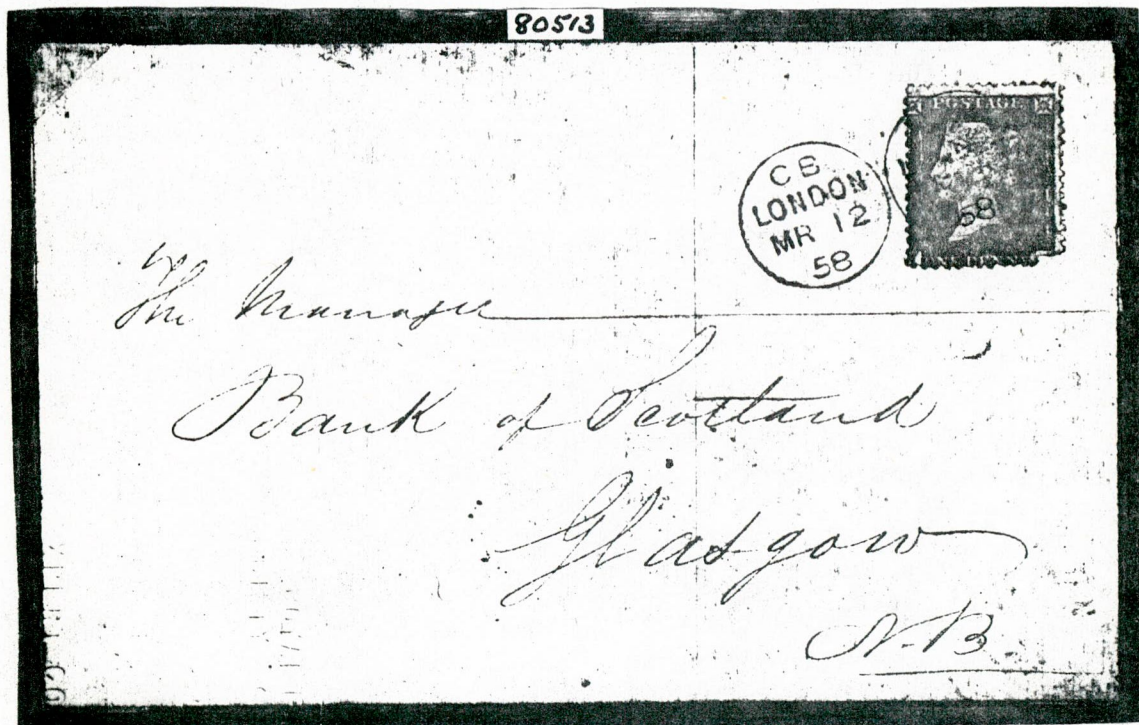 80513
POSTAGE
CB
LONDON
MR 12
58
58
The Manager
Bank of Scotland
Glasgow
N.B